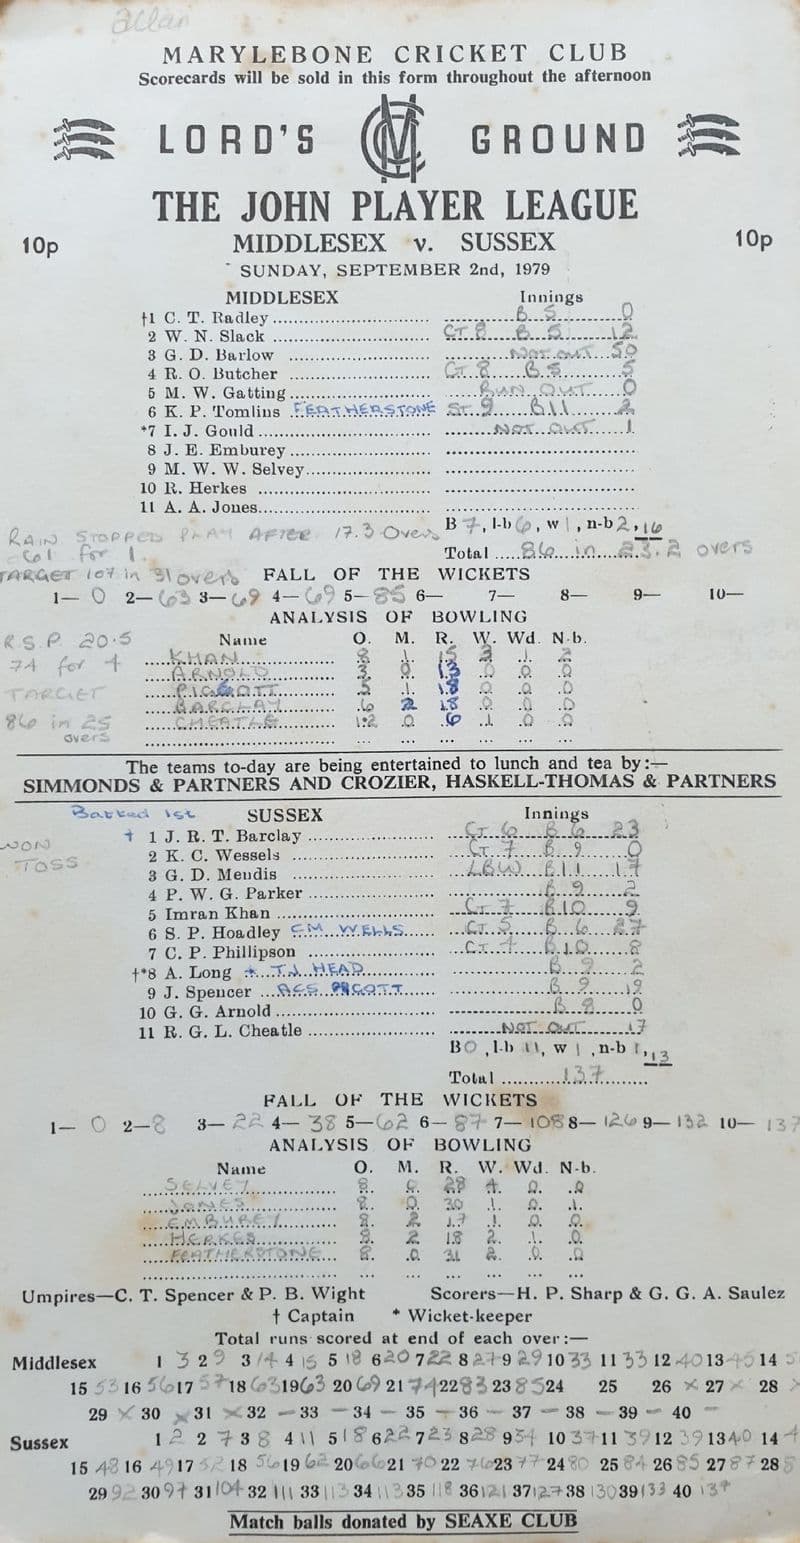 allan
MARYLEBONE CRICKET CLUB
Scorecards will be sold in this form throughout the afternoon
LORD'S MCC GROUND
THE JOHN PLAYER LEAGUE
10p MIDDLESEX v. SUSSEX 10p
SUNDAY, SEPTEMBER 2nd, 1979
MIDDLESEX Innings
†1 C. T. Radley B 5 0
2 W. N. Slack CT. 8 B 5 12
3 G. D. Barlow NOT OUT 50
4 R. O. Butcher CT 8 B 5 5
5 M. W. Gatting RUN OUT 0
6 K. P. Tomlins FEATHERSTONE ST. 9 B 11 2
*7 I. J. Gould NOT OUT 1
8 J. E. Emburey
9 M. W. W. Selvey
10 R. Herkes
11 A. A. Jones
B 7, l-b 6, w 1, n-b 2, 16
RAIN STOPPED PLAY AFTER 17.3 Overs
61 for 1.
Total 86 23.2 overs
TARGET 107 in 31 overs FALL OF THE WICKETS
1— 0 2— 63 3— 69 4— 69 5— 85 6— 7— 8— 9— 10—
ANALYSIS OF BOWLING
R.S.P 20.5 Name O. M. R. W. Wd. N-b.
74 for 4 KHAN 8 1 15 3 1 2
ARNOLD 3 0 13 0 0 0
TARGET PIGOTT 5 1 18 0 0 0
BARCLAY 6 2 18 0 0 0
86 in 25 CHEATLE 1.2 0 6 1 0 0
overs
The teams to-day are being entertained to lunch and tea by:—
SIMMONDS & PARTNERS AND CROZIER, HASKELL-THOMAS & PARTNERS
Batted 1st SUSSEX Innings
† 1 J. R. T. Barclay CT. 6 B 6 23
WON
2 K. C. Wessels CT 7 B 9 0
TOSS
3 G. D. Mendis LBW B 11 17
4 P. W. G. Parker B 9 2
5 Imran Khan CT 7 B 10 9
6 S. P. Hoadley C M WELLS CT 5 B 6 27
7 C. P. Phillipson CT 4 B 10 8
†*8 A. Long * T J HEAD B 9 2
9 J. Spencer ACS PIGOTT B 9 19
10 G. G. Arnold B 8 0
11 R. G. L. Cheatle NOT OUT 17
B 0, l-b 11, w 1, n-b 1, 13
Total 137
FALL OF THE WICKETS
1— 0 2— 8 3— 22 4— 38 5— 62 6— 87 7— 108 8— 126 9— 132 10— 137
ANALYSIS OF BOWLING
Name O. M. R. W. Wd. N-b.
SELVEY 8. 28 4. 0. 0
JONES 8. 0. 30 1. 0. 1.
EMBUREY 8. 2 17 1. 0. 0.
HERKES 8. 2 18 2. 1. 0.
FEATHERSTONE 8. 0 31 2. 0. 0
Umpires—C. T. Spencer & P. B. Wight Scorers—H. P. Sharp & G. G. A. Saulez
† Captain * Wicket-keeper
Total runs scored at end of each over:—
Middlesex 1 3 2 9 3 14 4 15 5 18 6 20 7 22 8 27 9 29 10 33 11 33 12 40 13 45 14
15 53 16 56 17 57 18 63 19 63 20 69 21 74 22 83 23 85 24 25 26 × 27 × 28 ×
29 × 30 × 31 × 32 — 33 — 34 — 35 — 36 — 37 — 38 — 39 — 40 —
Sussex 1 2 2 7 3 8 4 11 5 18 6 22 7 23 8 28 9 34 10 37 11 39 12 39 13 40 14
15 48 16 49 17 52 18 56 19 62 20 66 21 70 22 76 23 77 24 80 25 84 26 85 27 87 28
29 92 30 97 31 104 32 111 33 113 34 113 35 118 36 121 37 127 38 130 39 133 40 137
Match balls donated by SEAXE CLUB